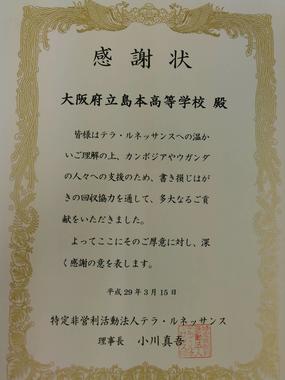 感謝状
大阪府立島本高等学校 殿
皆様はテラ・ルネッサンスへの温か
いご理解の上、カンボジアやウガンダ
の人々への支援のため、書き損じはが
きの回収協力を通して、多大なるご貢
献をいただきました。
よってここにそのご厚意に対し、深
く感謝の意を表します。
平成29年3月15日
特定非営利活動法人テラ・ルネッサンス
理事長 小川真吾